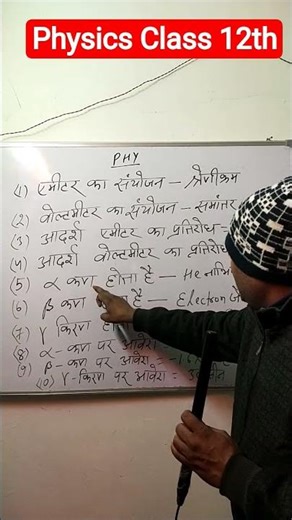 Physics Class 12th
PHY
(1) एमीटर का संयोजन – श्रेणीक्रम
(2) वोल्टमीटर का संयोजन – समांतर
(3) आदर्श एमीटर का प्रतिरोध –
(4) आदर्श वोल्टमीटर का प्रतिरोध
(5) α कण होता है – He
(6) β कण है – Electron
(7) γ किरण
(8) α – कण पर आवेश
(9) β – कण पर आवेश =
(10) γ – किरण पर आवेश =